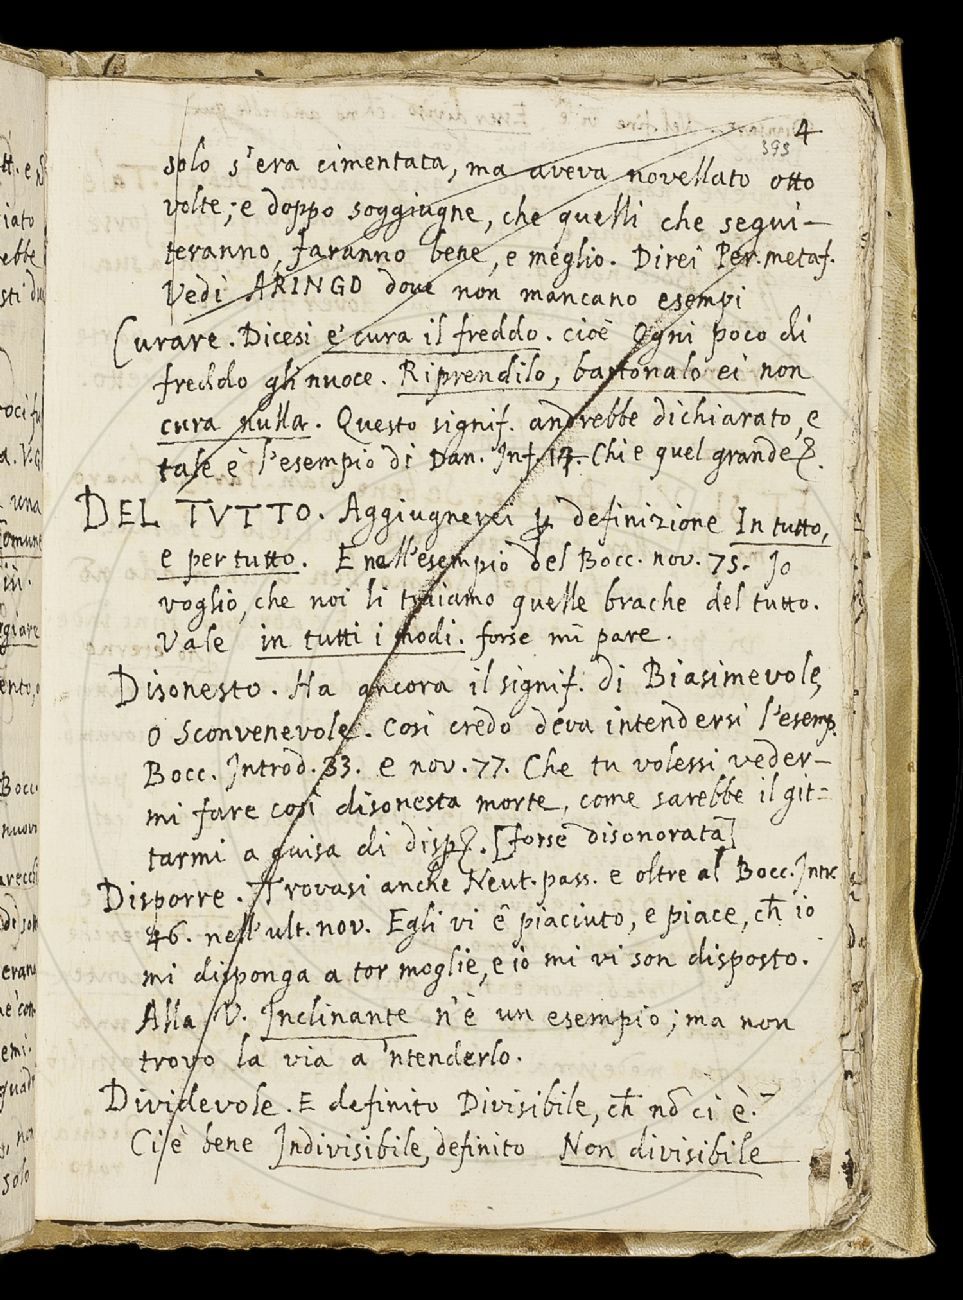 4
393
solo s'era cimentata, ma aveva novellato otto
volte; e doppo soggiugne, che quelli che segui-
teranno, faranno bene, e meglio. Direi Per. metaf.
Vedi ARINGO dove non mancano esempi
Curare. Dicesi e' cura il freddo. cioè Ogni poco di
freddo gli nuoce. Riprendilo, bastonalo ei non
cura nulla. Questo signif. andrebbe dichiarato, e
tale è l'esempio di Dan. Inf. 14. Chi e quel grande
DEL TVTTO. Aggiugnerei definizione In tutto,
e per tutto. E nell'esempio del Bocc. nov. 75. Io
voglio, che noi li traiamo quelle brache del tutto.
Vale in tutti i modi. forse mi pare.
Disonesto. Ha ancora il signif. di Biasimevole,
o Sconvenevole. Così credo deva intendersi l'esemp.
Bocc. Introd. 33. e nov. 77. Che tu volessi veder-
mi fare così disonesta morte, come sarebbe il git=
tarmi a guisa di disp. [forse disonorata]
Disporre. Trovasi anche Neut. pass. e oltre al Bocc. Intr
46. nell'ult. nov. Egli vi è piaciuto, e piace, ch̄ io
mi disponga a tor moglie, e io mi vi son disposto.
Alla V. Inclinante n'è un esempio; ma non
trovo la via a 'ntenderlo.
Dividevole. E definito Divisibile, ch̄ nō ci è.
Ci è bene Indivisibile, definito Non divisibile